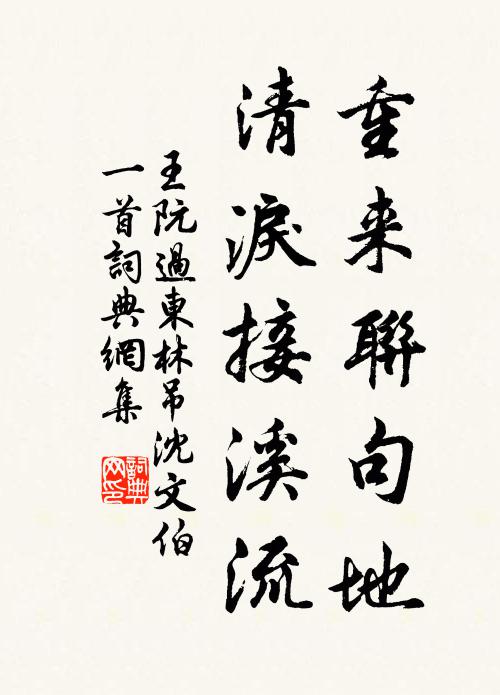 重来聯句地
清淚接溪流
王阮過東林吊沈文伯
一首詞典網集
詞典網印